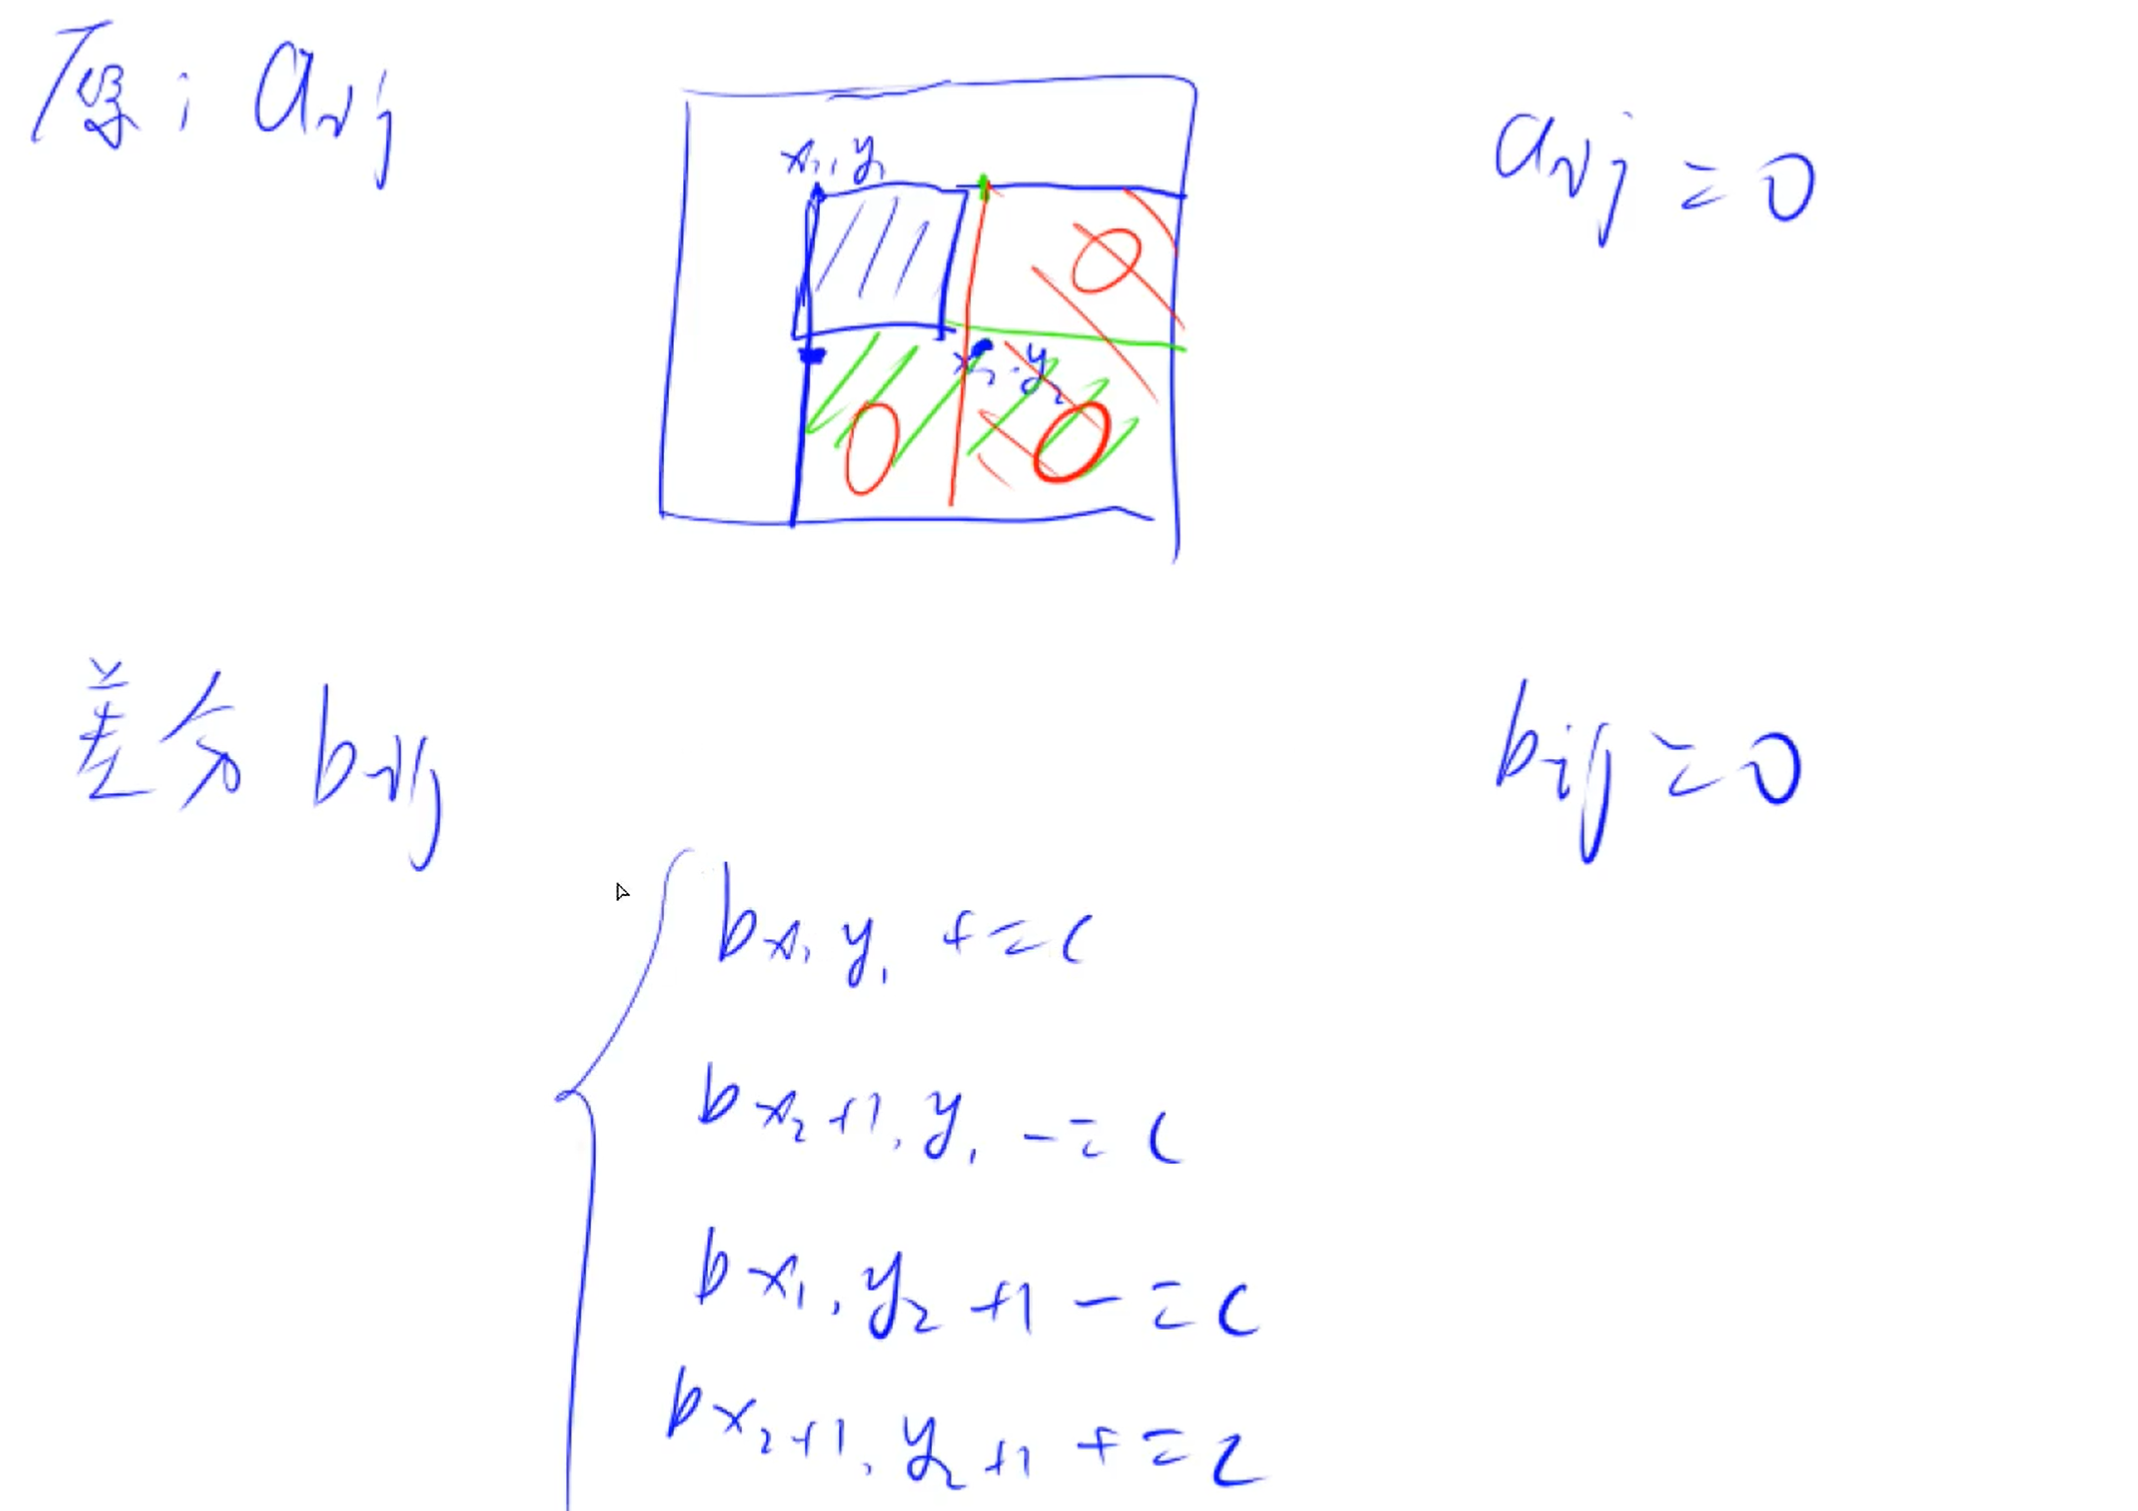 原: aij
x₁, y₁
aij = 0
0
x₂, y₂
0
0
差分 bij
bij = 0
bx₁ y₁ += c
bx₂+1, y₁ -= c
bx₁, y₂+1 -= c
bx₂+1, y₂+1 += c